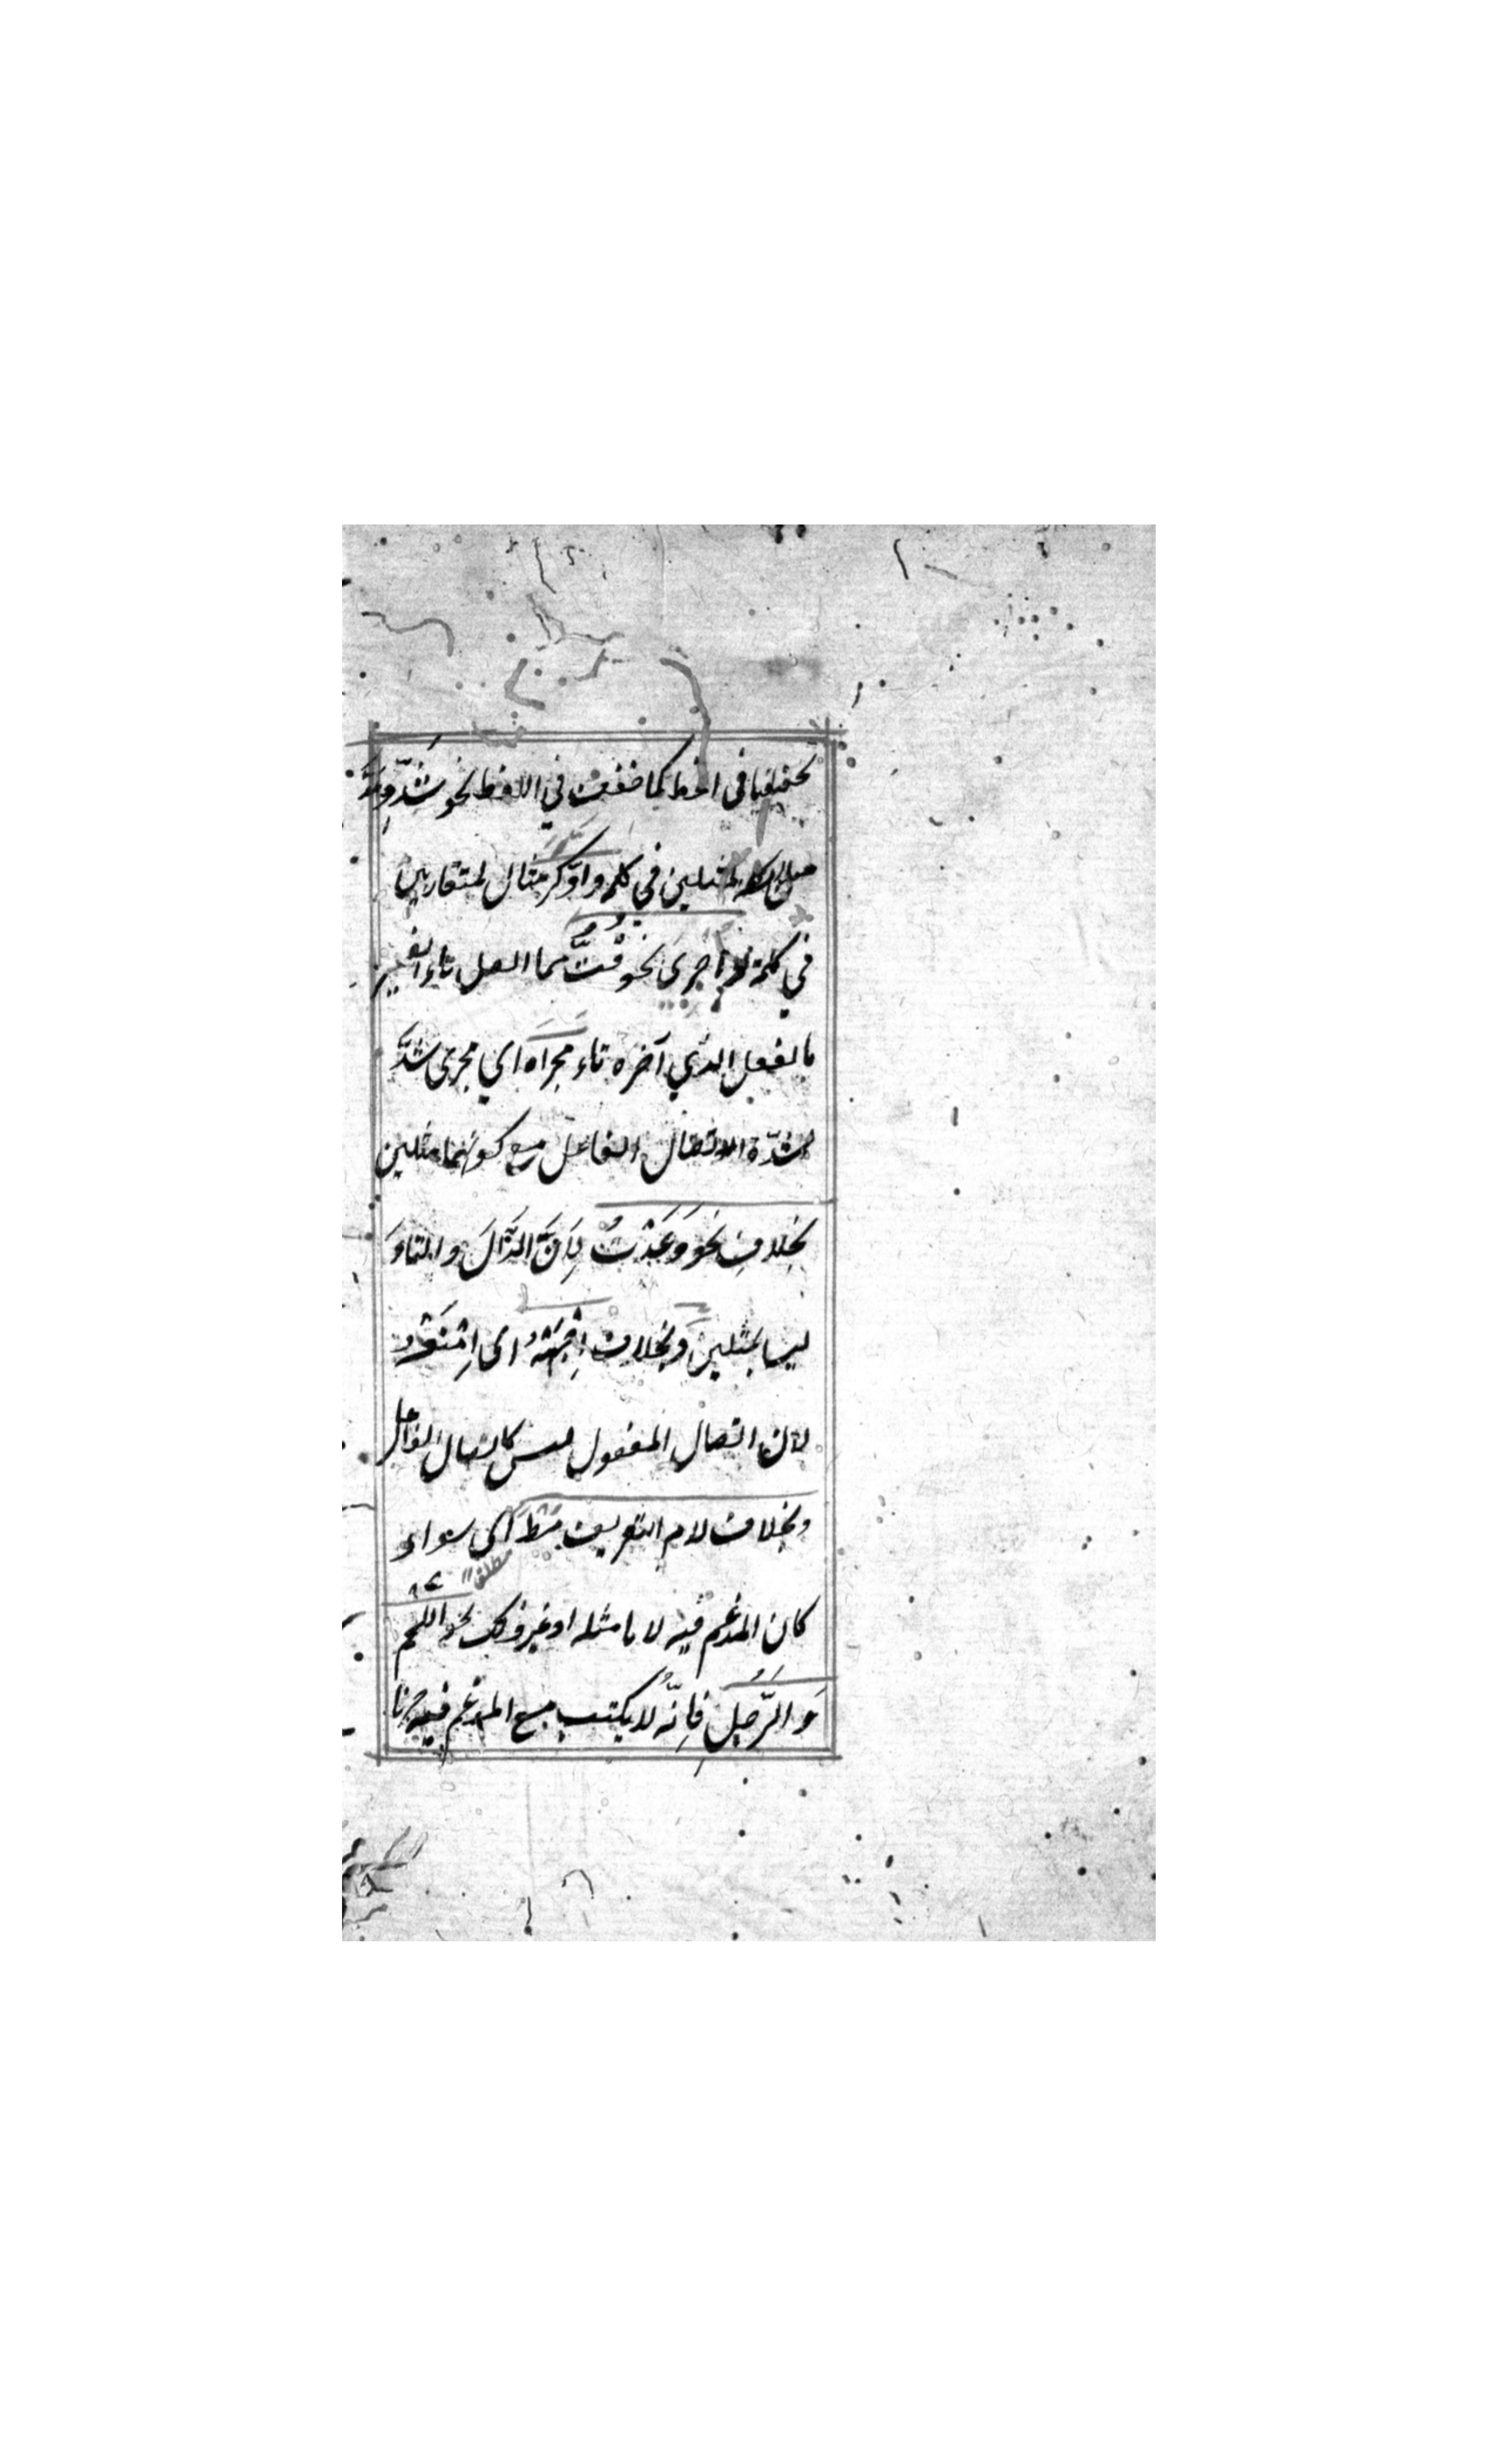 تخفيفا في الخط كما خففت في اللفظ نحو شدّ ومدّ
مثالان لمثلين في كلمة وادّكر مثال لمتقاربين
في كلمة اجرى نحو قتتُّ مما اتصل تاء الضمير
بالفعل الذي آخره تاء مجراه اي مجرى شدَّ
لشدّة الاتصال الفاعل مع كونهما مثلين
بخلافِ نحو وَعَدْتُ لِاَنَّ الدَّالَ والتاءَ
ليسا بمثلين وَبخلاف اِجْبَهْهُ اى
لان اتصال المفعول ليس كاتصال الفاعل
وبخلاف لام التعريف مط اى سواء
مطلقا ١٢
كان المدغم فيه لاما مثله او غير ذلك نحو اللحم
وَالرَّجُلِ فَاِنّهُ لا يكتب مع المدغم فيه حرفا